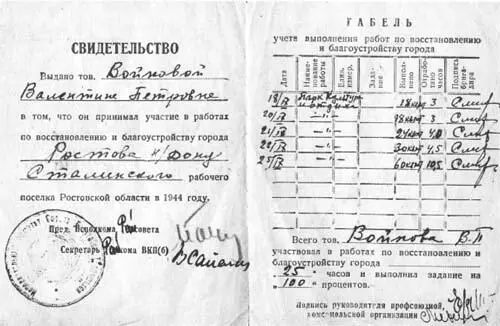 СВИДЕТЕЛЬСТВО
Выдано тов. Войновой
Валентине Петровне
в том, что он принимал участие в работах
по восстановлению и благоустройству города
Ростова н/Дону
Сталинского рабочего
поселка Ростовской области в 1944 году.
Пред. Исполкома Райсовета
Секретарь Райкома ВКП(б)
ТАБЕЛЬ
учета выполнения работ по восстановлению
и благоустройству города
Дата Наименование работы Един. измер. Задание Выполнено Отработано часов Подпись бригадира
18/IV Парк культуры отдыха 18 3
20/IV —"— 18 3
21/IV —"— 24 4,0
22/IV —"— 30 4,5
25/IV —"— 60 10,5
Всего тов. Войнова В.П
участвовала в работах по восстановлению и
благоустройству города
25 часов и выполнил задание на
100 процентов.
Подпись руководителя профсоюзной,
комсомольской организации